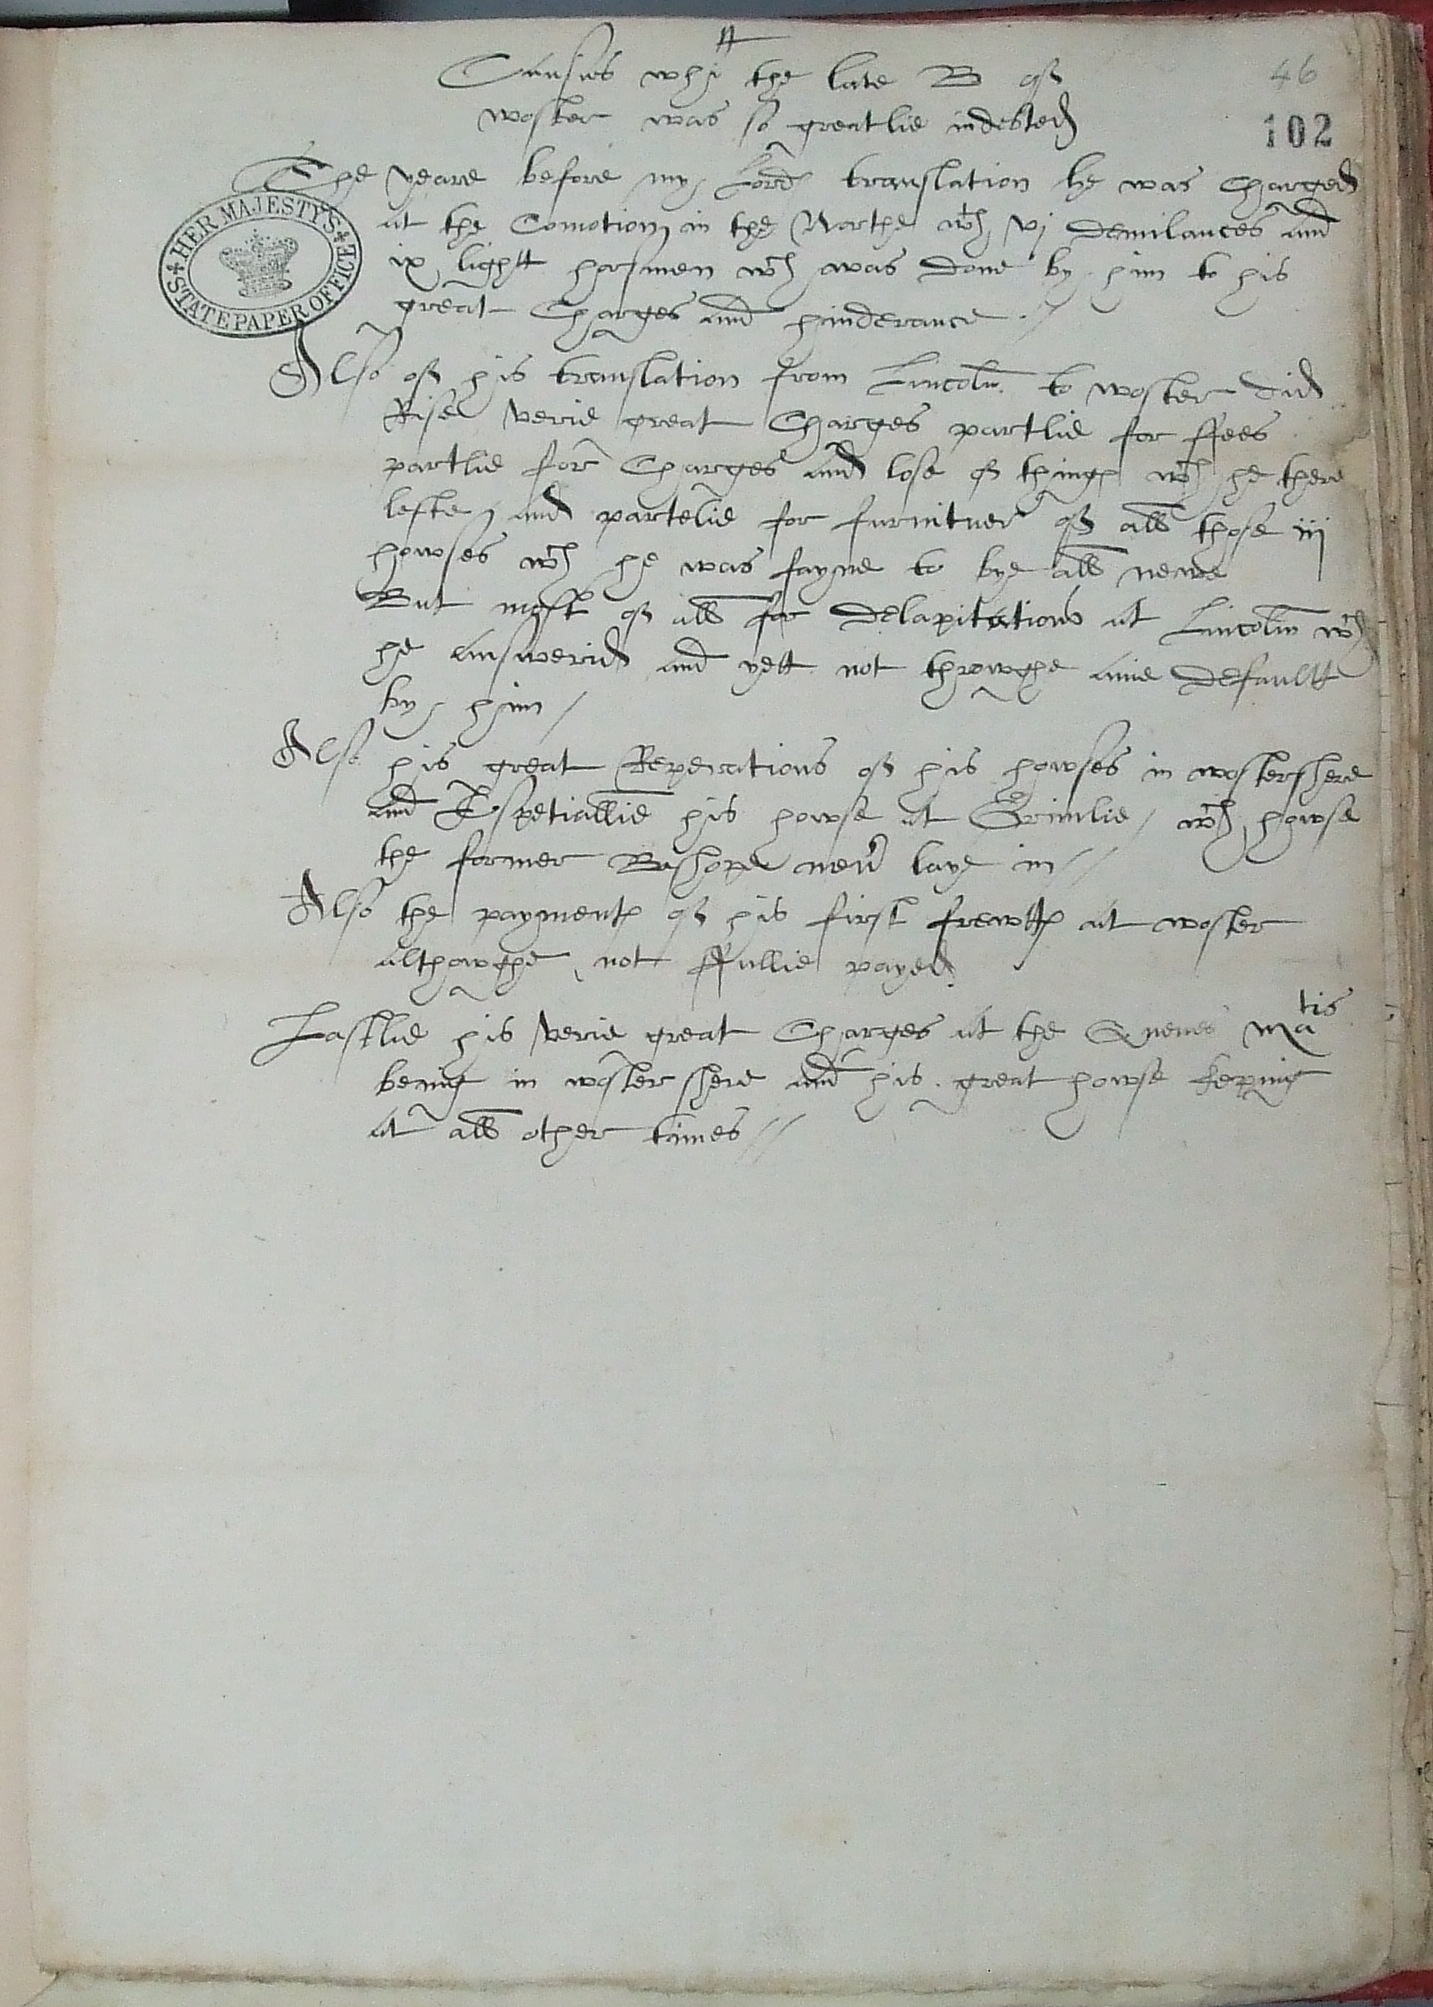 Causies whi the late B of
woster was so greatlie indebted
46
102
The yeare before my Lord translation he was Charged
at the Comotion in the Northe wth vj demilances and
ix lightt horsmen wch was done by him to his
great Charges and hinderance
HER MAJESTY'S STATE PAPER OFFICE
Also of his translation from Lincoln to woster did
Rise verie great Charges partlie for ffees
partlie for Charges and lose of things wch he there
lefte, and partelie for furnituer of all those iij
howses wch he was fayne to bye all newe
But most of all for delapitations at Lincolnn wch
he answerid and yett not throwghe anie defaultt
by him /
Also his great Reperations of his howses in wostershere
and Espetiallie his howse at Grimlie / wch howse
the former Bishope never laye in //
Also the payments of his first frewtts at woster
althowghe not ffullie payed
Lastlie his verie great Charges at the Quenes Matis
being in woster shere and his great howse keping
at all other times //